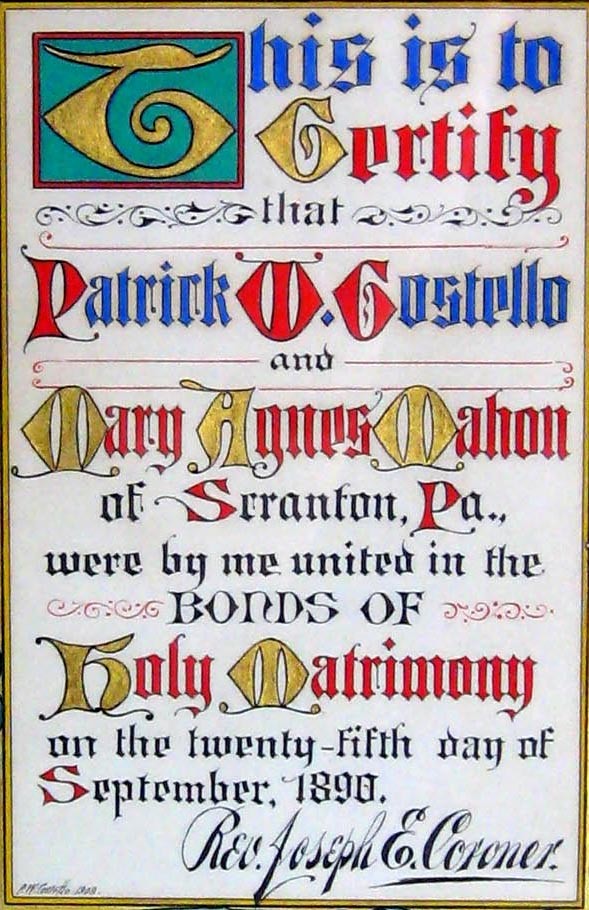 This is to
Certify
that
Patrick W. Costello
and
Mary Agnes Mahon
of Scranton, Pa.,
were by me united in the
BONDS OF
Holy Matrimony
on the twenty-fifth day of
September, 1890.
Rev. Joseph E. Coroner.
P.W. Costello 1908.